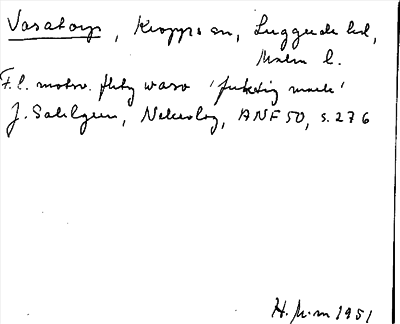 Vasatorp, Kropps sn, Luggude hd,
Malm l.
F.l. motsv. fht waso 'fuktig mark'
J. Sahlgren, Nekrolog, ANF 50, s. 276
H. 1951